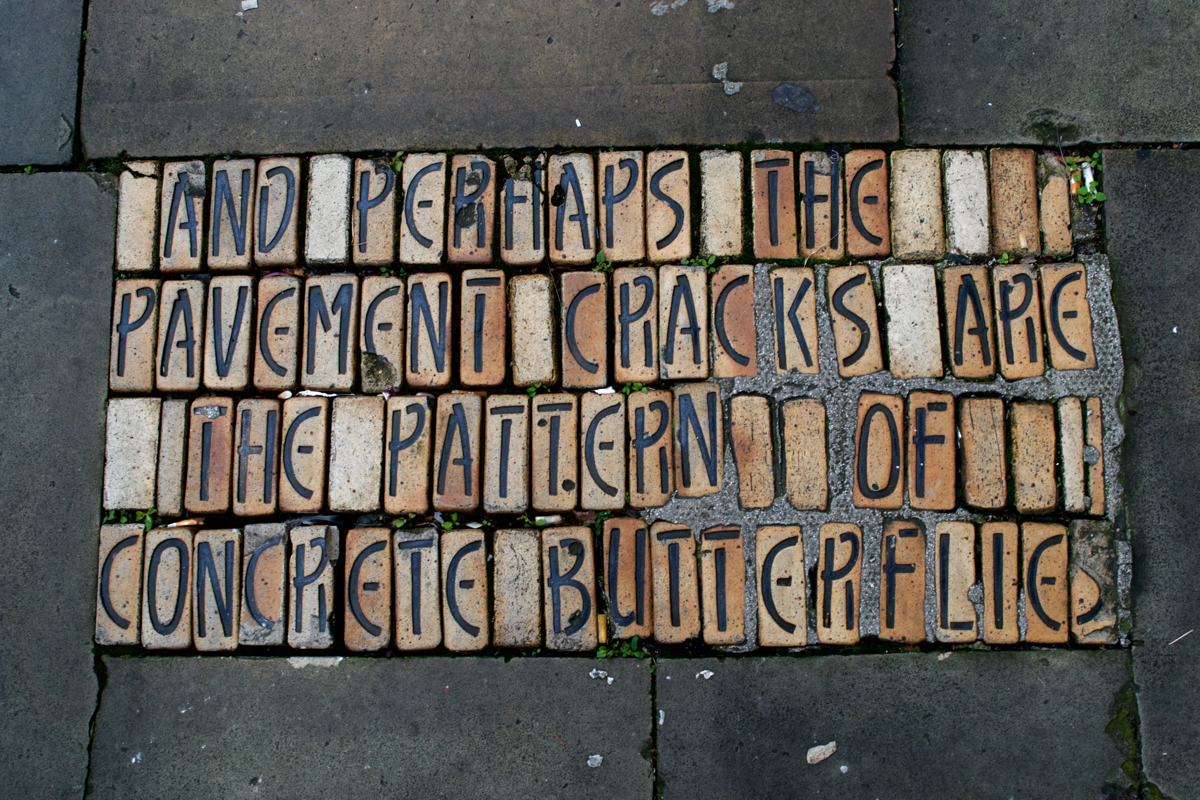 AND PERHAPS THE
PAVEMENT CRACKS ARE
THE PATTERN OF
CONCRETE BUTTERFLIES